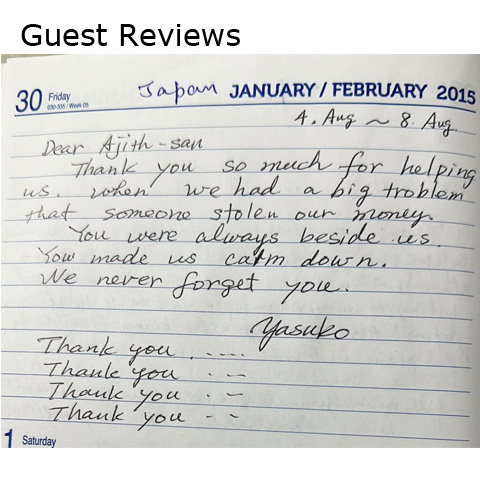 Guest Reviews
30 Friday Japan JANUARY / FEBRUARY 2015
030-335 / Week 05
4. Aug ~ 8. Aug
Dear Ajith-san
Thank you so much for helping
us. when we had a big troblem
that someone stolen our money.
You were always beside us.
You made us calm down.
We never forget you.
Yasuko
Thank you . ----
Thank you . --
Thank you . --
Thank you - -
1 Saturday